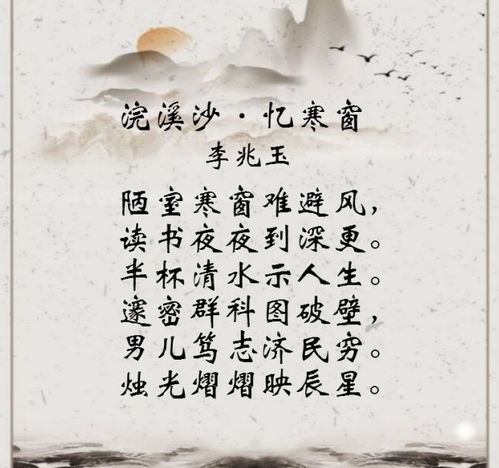 浣溪沙·忆寒窗
李兆玉
陋室寒窗难避风，
读书夜夜到深更。
半杯清水示人生。
邃密群科图破壁，
男儿笃志济民穷。
烛光熠熠映辰星。